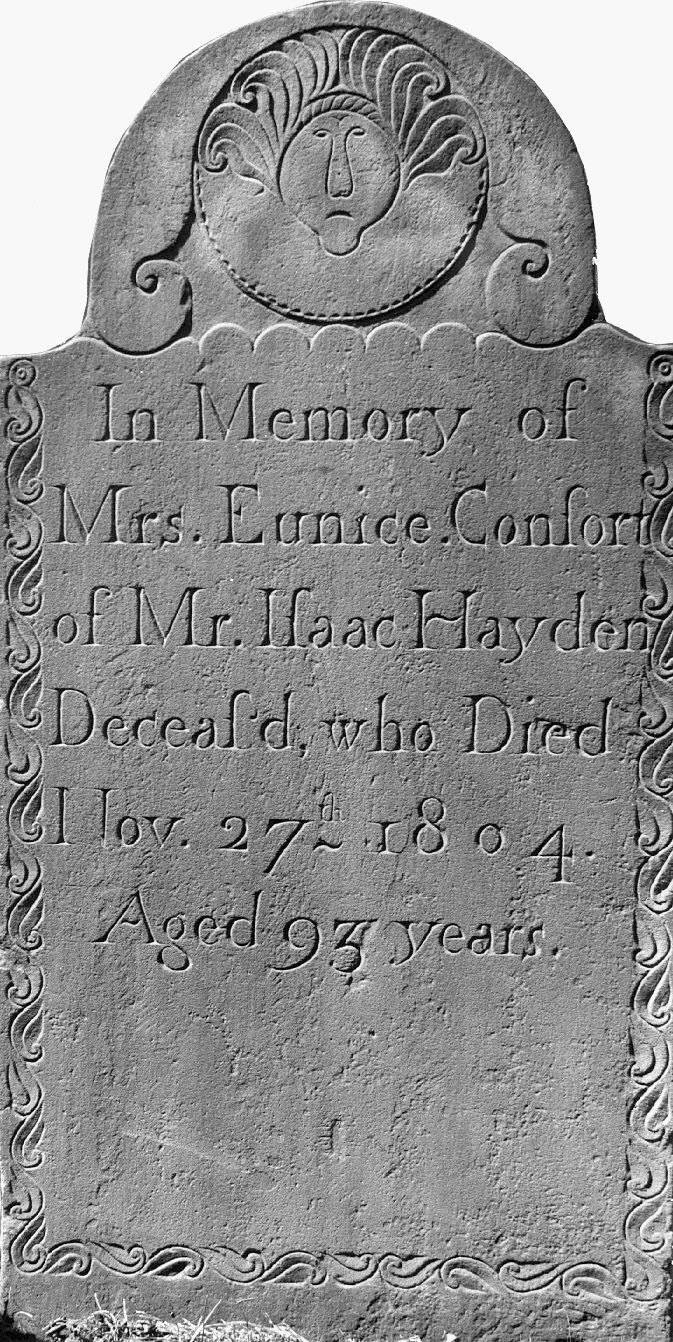 In Memory of
Mrs. Eunice. Conſort
of Mr. Iſaac Hayden
Deceaſ'd, who Died
Nov. 27th 1804.
Aged 93 years.